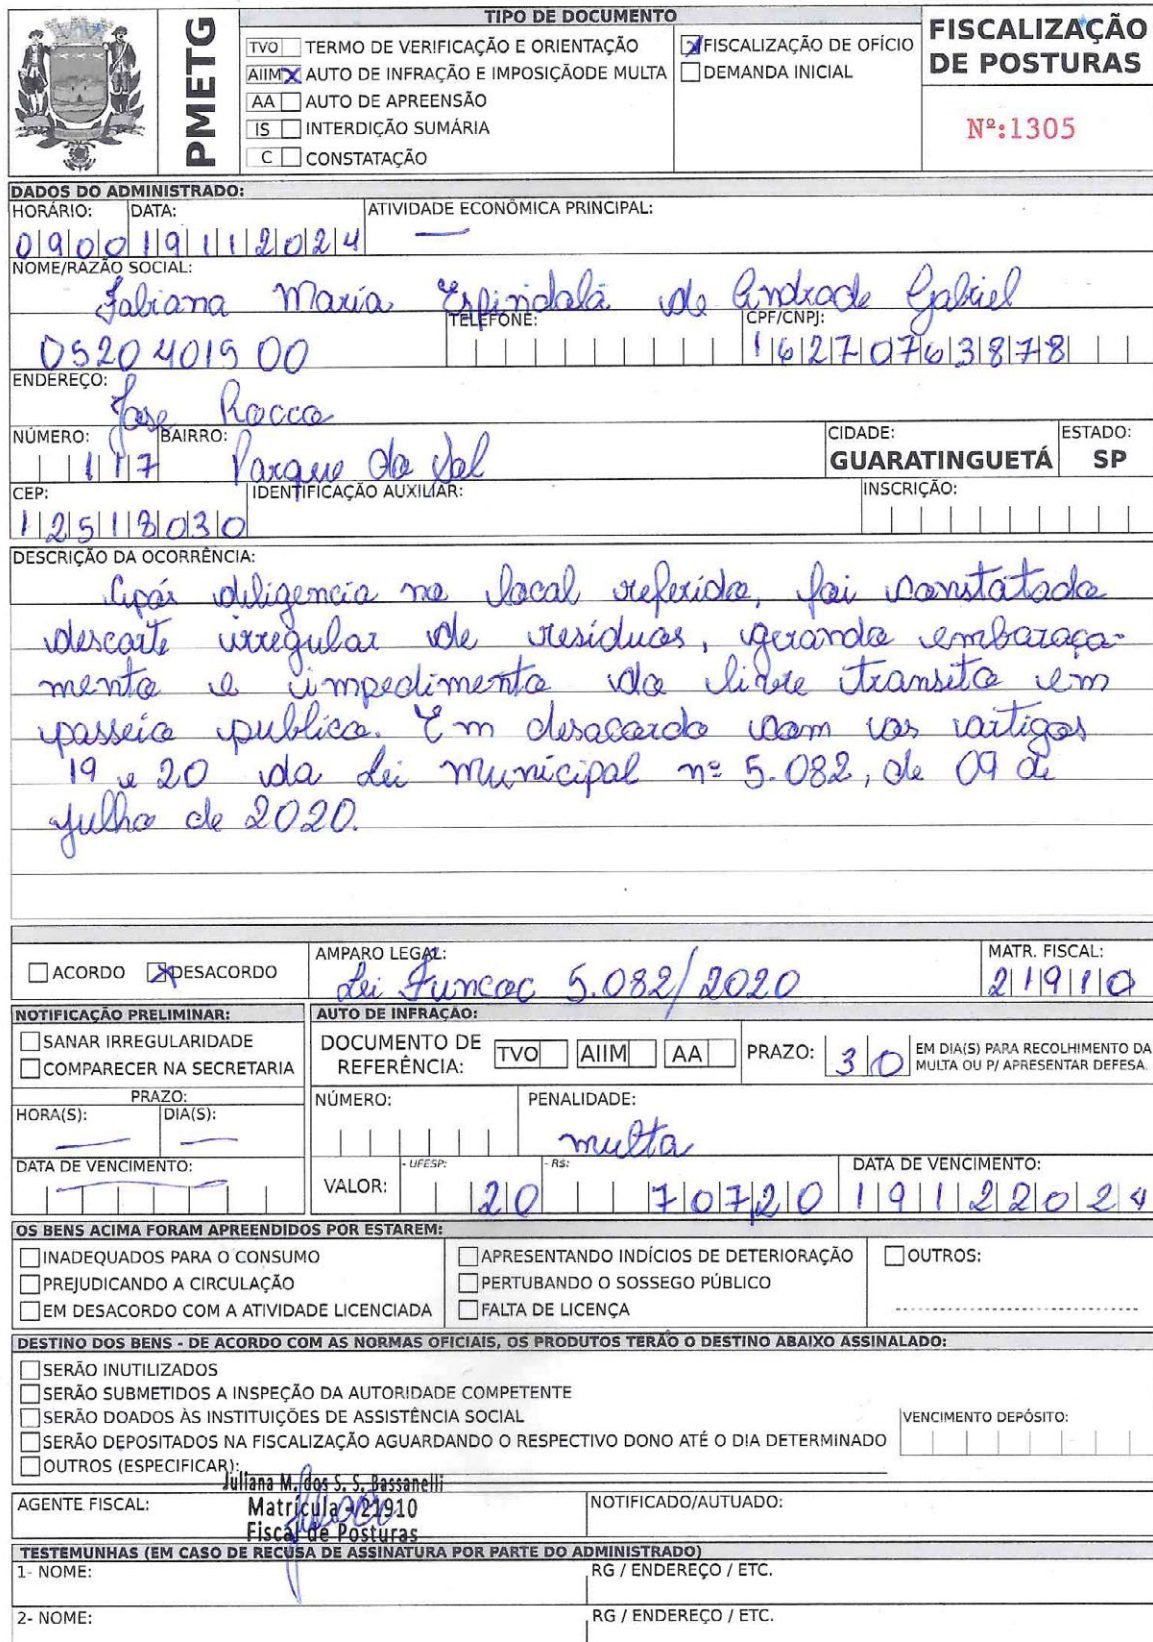 PMETG
TIPO DE DOCUMENTO
TVO TERMO DE VERIFICAÇÃO E ORIENTAÇÃO
AIIM X AUTO DE INFRAÇÃO E IMPOSIÇÃODE MULTA
AA AUTO DE APREENSÃO
IS INTERDIÇÃO SUMÁRIA
C CONSTATAÇÃO
X FISCALIZAÇÃO DE OFÍCIO
DEMANDA INICIAL
FISCALIZAÇÃO
DE POSTURAS
Nº:1305
DADOS DO ADMINISTRADO:
HORÁRIO: DATA: ATIVIDADE ECONÔMICA PRINCIPAL:
0900 19112024 —
NOME/RAZÃO SOCIAL:
Fabiana Maria Espindola de Andrade Gabriel
TELEFONE: CPF/CNPJ:
0520401500 16270763878
ENDEREÇO:
Jose Rocco
NÚMERO: BAIRRO: CIDADE: ESTADO:
117 Parque do Sol GUARATINGUETÁ SP
CEP: IDENTIFICAÇÃO AUXILIAR: INSCRIÇÃO:
12518030
DESCRIÇÃO DA OCORRÊNCIA:
Após diligencia no local referido, foi constatado
descarte irregular de resíduos, gerando embaraça-
mento e impedimento do livre transito em
passeio publico. Em desacordo com os artigos
19 e 20 da Lei municipal nº 5.082, de 09 de
julho de 2020.
ACORDO X DESACORDO
AMPARO LEGAL:
Lei 5.082/2020
MATR. FISCAL:
21910
NOTIFICAÇÃO PRELIMINAR:
SANAR IRREGULARIDADE
COMPARECER NA SECRETARIA
PRAZO:
HORA(S): DIA(S):
— —
DATA DE VENCIMENTO:
—
AUTO DE INFRAÇÃO:
DOCUMENTO DE
REFERÊNCIA: TVO AIIM AA
PRAZO: 30 EM DIA(S) PARA RECOLHIMENTO DA
MULTA OU P/ APRESENTAR DEFESA.
NÚMERO: PENALIDADE:
multa
VALOR: - UFESP: 20 - R$: 707,20
DATA DE VENCIMENTO:
19122024
OS BENS ACIMA FORAM APREENDIDOS POR ESTAREM:
INADEQUADOS PARA O CONSUMO
PREJUDICANDO A CIRCULAÇÃO
EM DESACORDO COM A ATIVIDADE LICENCIADA
APRESENTANDO INDÍCIOS DE DETERIORAÇÃO
PERTUBANDO O SOSSEGO PÚBLICO
FALTA DE LICENÇA
OUTROS:
DESTINO DOS BENS - DE ACORDO COM AS NORMAS OFICIAIS, OS PRODUTOS TERÃO O DESTINO ABAIXO ASSINALADO:
SERÃO INUTILIZADOS
SERÃO SUBMETIDOS A INSPEÇÃO DA AUTORIDADE COMPETENTE
SERÃO DOADOS ÀS INSTITUIÇÕES DE ASSISTÊNCIA SOCIAL
SERÃO DEPOSITADOS NA FISCALIZAÇÃO AGUARDANDO O RESPECTIVO DONO ATÉ O DIA DETERMINADO
VENCIMENTO DEPÓSITO:
OUTROS (ESPECIFICAR):
Juliana M. dos S. S. Bassanelli
AGENTE FISCAL: Matrícula - 21910
Fiscal de Posturas
NOTIFICADO/AUTUADO:
TESTEMUNHAS (EM CASO DE RECUSA DE ASSINATURA POR PARTE DO ADMINISTRADO)
1- NOME: RG / ENDEREÇO / ETC.
2- NOME: RG / ENDEREÇO / ETC.